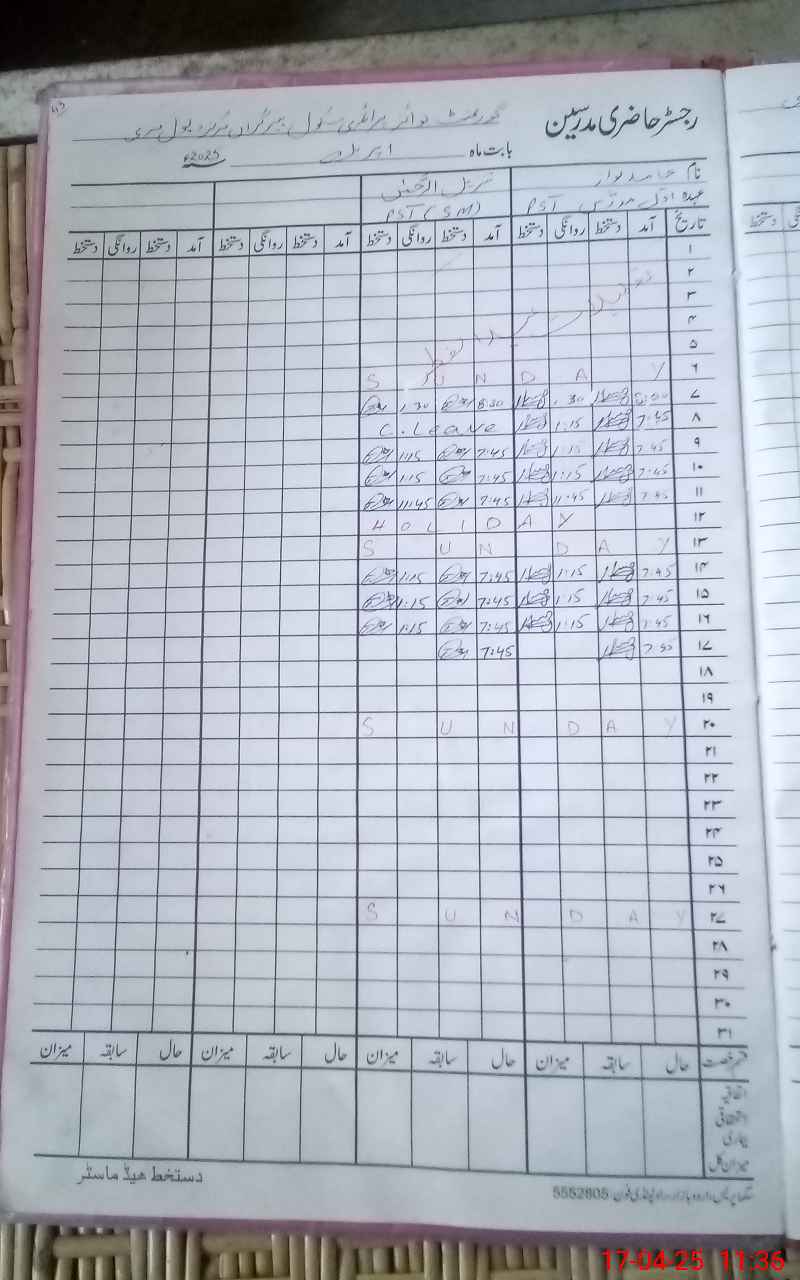 رجسٹر حاضری مدرسین
گورنمنٹ بوائز پرائمری سکول
بابت ماہ اپریل 2025ء
نام
عہدہ اول مدرس PST
PST (SM)
تاریخ آمد دستخط روانگی دستخط آمد دستخط روانگی دستخط آمد دستخط روانگی دستخط آمد دستخط روانگی دستخط
۱
۲
۳
۴
۵
۶ S U N D A Y
۷ 1:30 8:30 1:30
۸ 7:45 1:15 C. Leave
۹ 7:45 1:15 7:45 1:15
۱۰ 7:45 1:15 7:45 1:15
۱۱ 7:45 11:45 7:45 11:45
۱۲ H O L I D A Y
۱۳ S U N D A Y
۱۴ 7:45 1:15 7:45 1:15
۱۵ 7:45 1:15 7:45 1:15
۱۶ 7:45 1:15 7:45 1:15
۱۷ 7:45 7:45
۱۸
۱۹
۲۰ S U N D A Y
۲۱
۲۲
۲۳
۲۴
۲۵
۲۶
۲۷ S U N D A Y
۲۸
۲۹
۳۰
۳۱
قسم رخصت حال سابقہ میزان حال سابقہ میزان حال سابقہ میزان حال سابقہ میزان
اتفاقیہ
استحقاقی
بیماری
میزان کل
دستخط ھیڈ ماسٹر
اردو بازار، راولپنڈی فون: 5552805
17-04-25 11:36